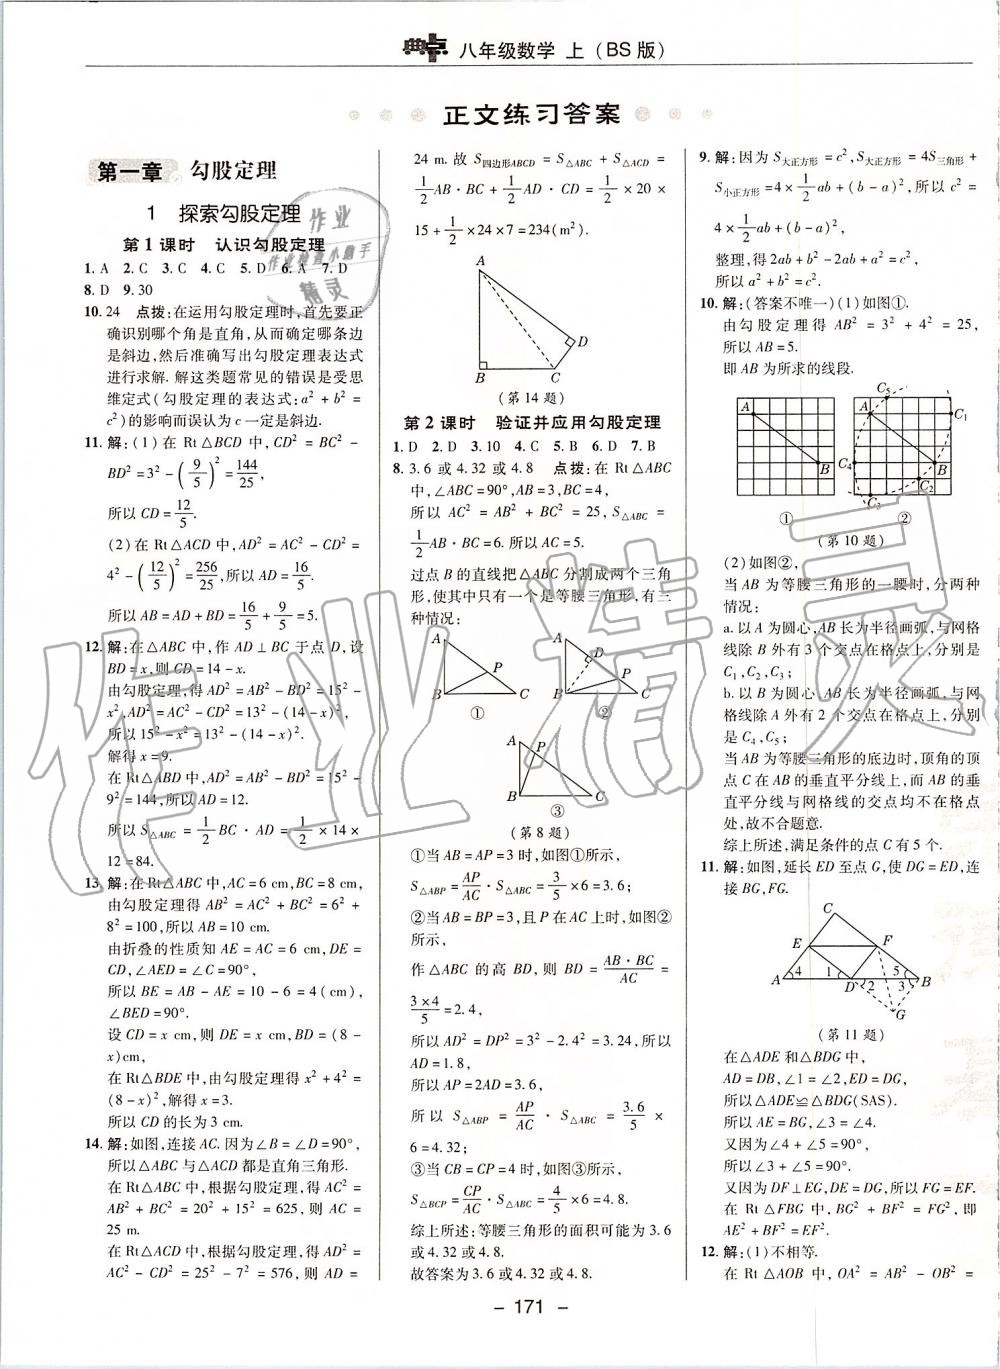 典中点 八年级数学 上(BS版)
正文练习答案
第一章 勾股定理
1 探索勾股定理
第1课时 认识勾股定理
1. A 2. C 3. C 4. C 5. D 6. A 7. D
8. D 9. 30
10. 24 点拨:在运用勾股定理时,首先要正
确识别哪个角是直角,从而确定哪条边
是斜边,然后准确写出勾股定理表达式
进行求解. 解这类题常见的错误是受思
维定式(勾股定理的表达式:a²+b²=
c²)的影响而误认为c一定是斜边.
11. 解:(1)在Rt△BCD中,CD²=BC²-
BD²=3²-(9/5)²=144/25,
所以CD=12/5.
(2)在Rt△ACD中,AD²=AC²-CD²=
4²-(12/5)²=256/25,所以AD=16/5.
所以AB=AD+BD=16/5+9/5=5.
12. 解:在△ABC中,作AD⊥BC于点D,设
BD=x,则CD=14-x.
由勾股定理得AD²=AB²-BD²=15²-
x²,AD²=AC²-CD²=13²-(14-x)²,
所以15²-x²=13²-(14-x)².
解得x=9.
在Rt△ABD中,AD²=AB²-BD²=15²-
9²=144,所以AD=12.
所以S△ABC=1/2BC·AD=1/2×14×
12=84.
13. 解:在Rt△ABC中,AC=6 cm,BC=8 cm,
由勾股定理得AB²=AC²+BC²=6²+
8²=100,所以AB=10 cm.
由折叠的性质知AE=AC=6 cm,DE=
CD,∠AED=∠C=90°,
所以BE=AB-AE=10-6=4(cm),
∠BED=90°.
设CD=x cm,则DE=x cm,BD=(8-
x)cm,
在Rt△BDE中,由勾股定理得x²+4²=
(8-x)²,解得x=3.
所以CD的长为3 cm.
14. 解:如图,连接AC. 因为∠B=∠D=90°,
所以△ABC与△ACD都是直角三角形.
在Rt△ABC中,根据勾股定理,得AC²=
AB²+BC²=20²+15²=625,则AC=
25 m.
在Rt△ACD中,根据勾股定理,得AD²=
AC²-CD²=25²-7²=576,则AD=
24 m. 故S四边形ABCD=S△ABC+S△ACD=
1/2AB·BC+1/2AD·CD=1/2×20×
15+1/2×24×7=234(m²).
A
D
B C
(第14题)
第2课时 验证并应用勾股定理
1. D 2. D 3. 10 4. C 5. B 6. D 7. B
8. 3.6或4.32或4.8 点拨:在Rt△ABC
中,∠ABC=90°,AB=3,BC=4,
所以AC²=AB²+BC²=25,S△ABC=
1/2AB·BC=6. 所以AC=5.
过点B的直线把△ABC分割成两个三角
形,使其中只有一个是等腰三角形,有三
种情况:
A P B C
①
A D P B C
②
A P B C
③
(第8题)
①当AB=AP=3时,如图①所示,
S△ABP=AP/AC·S△ABC=3/5×6=3.6;
②当AB=BP=3,且P在AC上时,如图②
所示,
作△ABC的高BD,则BD=AB·BC/AC=
3×4/5=2.4,
所以AD²=DP²=3²-2.4²=3.24,所以
AD=1.8,
所以AP=2AD=3.6,
所以S△ABP=AP/AC·S△ABC=3.6/5×
6=4.32;
③当CB=CP=4时,如图③所示,
S△BCP=CP/AC·S△ABC=4/5×6=4.8.
综上所述:等腰三角形的面积可能为3.6
或4.32或4.8.
故答案为3.6或4.32或4.8.
9. 解:因为S大正方形=c²,S大正方形=4S三角形+
S小正方形=4×1/2ab+(b-a)²,所以c²=
4×1/2ab+(b-a)²,
整理,得2ab+b²-2ab+a²=c²,
所以a²+b²=c².
10. 解:(答案不唯一)(1)如图①.
由勾股定理得AB²=3²+4²=25,
所以AB=5.
即AB为所求的线段.
A B
①
A B C₁ C₂ C₃ C₄ C₅
②
(第10题)
(2)如图②,
当AB为等腰三角形的一腰时,分两种
情况:
a. 以A为圆心,AB长为半径画弧,与网格
线除B外有3个交点在格点上,分别是
C₁,C₂,C₃;
b. 以B为圆心,AB长为半径画弧,与网
格线除A外有2个交点在格点上,分别
是C₄,C₅;
当AB为等腰三角形的底边时,顶角的顶
点C在AB的垂直平分线上,而AB的垂
直平分线与网格线的交点均不在格点
处,故不合题意.
综上所述,满足条件的点C有5个.
11. 解:如图,延长ED至点G,使DG=ED,连
接BG,FG.
C
E F
A 4 1 D 2 3 5 B
G
(第11题)
在△ADE和△BDG中,
AD=DB,∠1=∠2,DE=DG,
所以△ADE≌△BDG(SAS).
所以AE=BG,∠3=∠4.
又因为∠4+∠5=90°,
所以∠3+∠5=90°.
又因为DF⊥EG,DE=DG,所以FG=EF.
在Rt△FBG中,BG²+BF²=FG²,即
AE²+BF²=EF².
12. 解:(1)不相等.
在Rt△AOB中,OA²=AB²-OB²=
- 171 -
作业
作业检查小助手
精灵
作业精灵